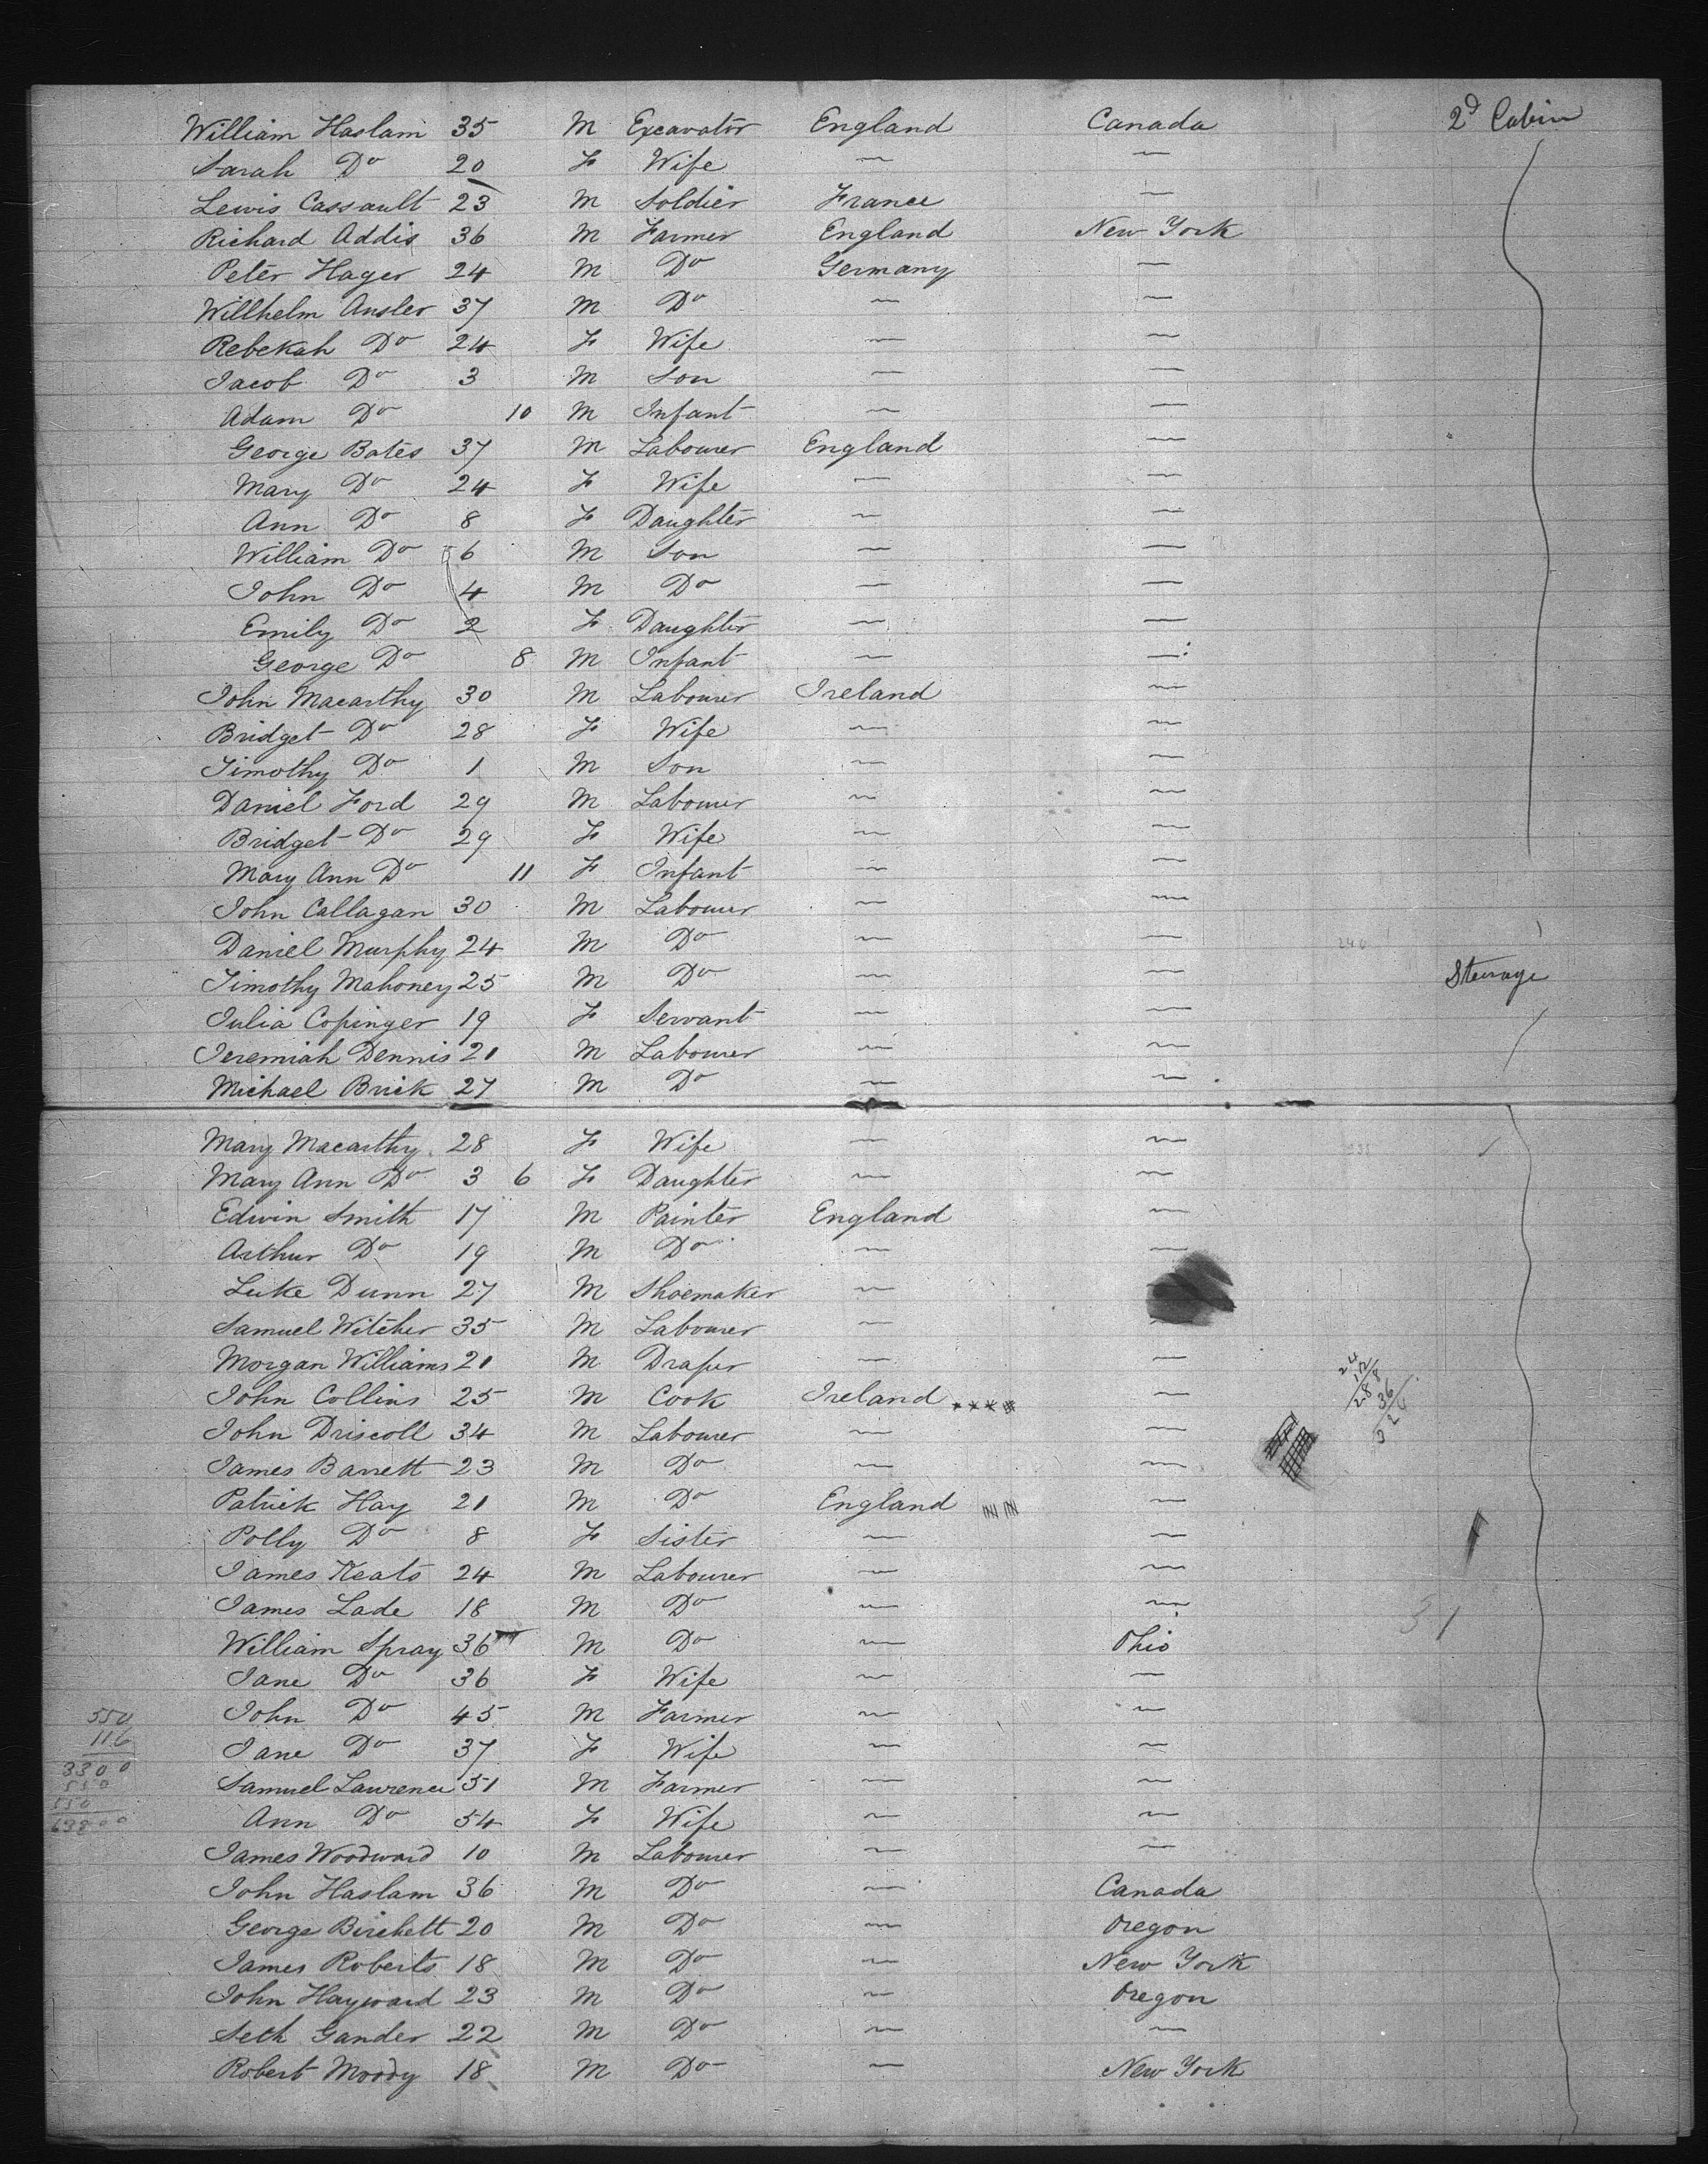 William Haslam 35 M Excavator England Canada 2d Cabin
Sarah Do 20 F Wife — —
Lewis Cassault 23 M Soldier France —
Richard Addis 36 M Farmer England New York
Peter Hager 24 M Do Germany —
Willhelm Ansler 37 M Do — —
Rebekah Do 24 F Wife — —
Jacob Do 3 M Son — —
Adam Do 10 M Infant — —
George Bates 37 M Labourer England —
Mary Do 24 F Wife — —
Ann Do 8 F Daughter — —
William Do 6 M Son — —
John Do 4 M Do — —
Emily Do 2 F Daughter — —
George Do 8 M Infant — —
John Macarthy 30 M Labourer Ireland —
Bridget Do 28 F Wife — —
Timothy Do 1 M Son — —
Daniel Ford 29 M Labourer — —
Bridget Do 29 F Wife — —
Mary Ann Do 11 F Infant — —
John Callagan 30 M Labourer — —
Daniel Murphy 24 M Do — — 240
Timothy Mahoney 25 M Do — — Steerage
Julia Copinger 19 F Servant — —
Jeremiah Dennis 21 M Labourer — —
Michael Brick 27 M Do — —
Mary Macarthy 28 F Wife — —
Mary Ann Do 3 6 F Daughter — —
Edwin Smith 17 M Painter England —
Arthur Do 19 M Do — —
Luke Dunn 27 M Shoemaker —
Samuel Witcher 35 M Labourer — —
Morgan Williams 21 M Draper — —
John Collins 25 M Cook Ireland —
John Driscoll 34 M Labourer — —
James Barrett 23 M Do — —
Patrick Hay 21 M Do England —
Polly Do 8 F Sister — —
James Keats 24 M Labourer — —
James Lade 18 M Do — — 31
William Spray 36 M Do — Ohio
Jane Do 36 F Wife — —
John Do 45 M Farmer — —
Jane Do 37 F Wife — —
Samuel Lawrence 51 M Farmer — —
Ann Do 54 F Wife — —
James Woodward 10 M Labourer — —
John Haslam 36 M Do — Canada
George Birchett 20 M Do — Oregon
James Roberts 18 M Do — New York
John Hayward 23 M Do — Oregon
Seth Gander 22 M Do — —
Robert Moody 18 M Do — New York
24
12
288
36
550
116
3300
550
550
63800